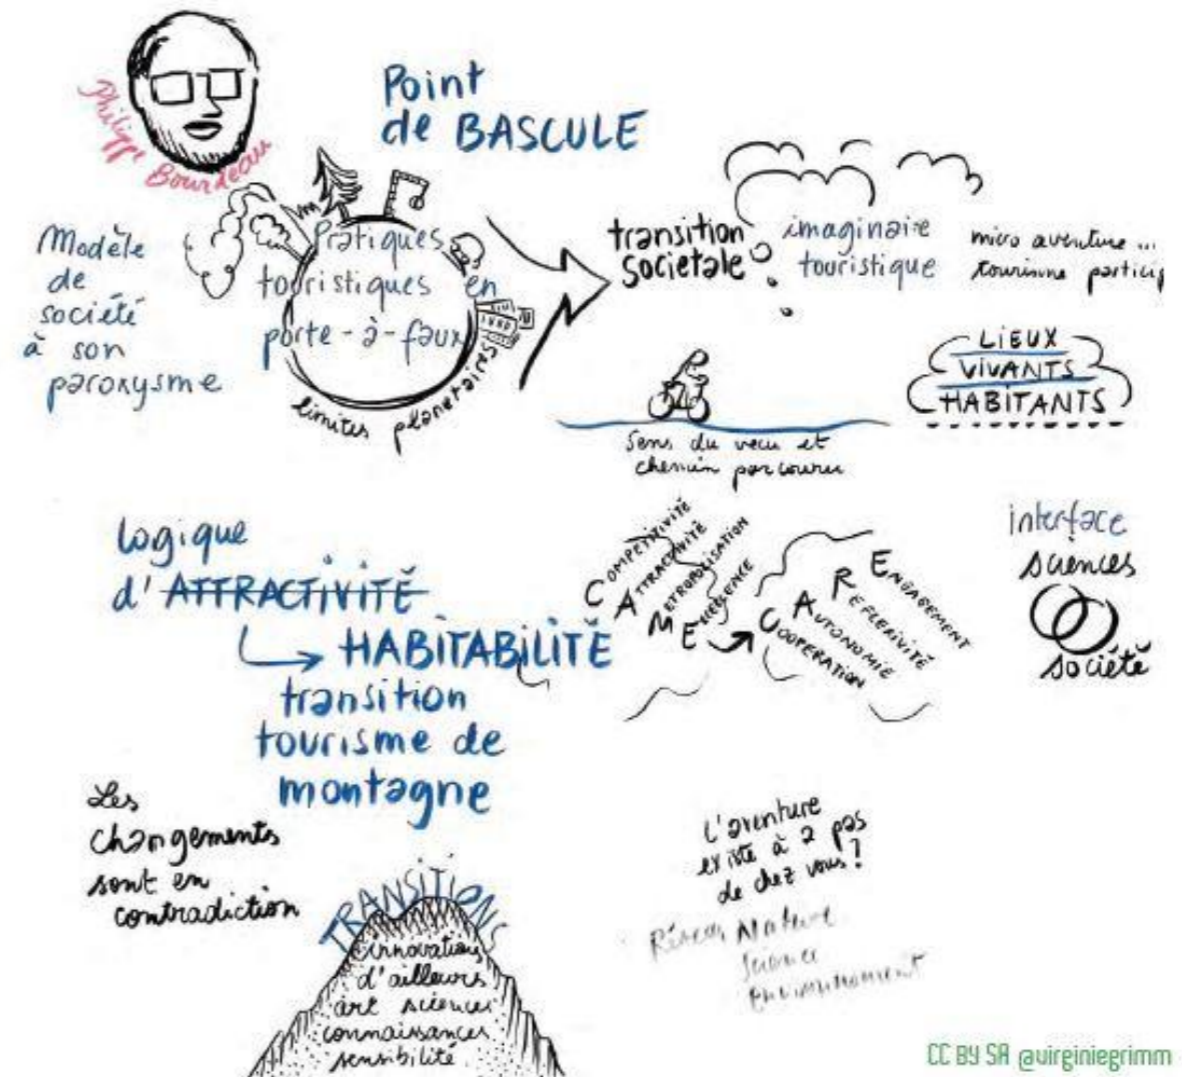 Philippe
Bourdeau
Point
de BASCULE
Modèle
de
société
à son
paroxysme
Pratiques
touristiques en
porte-à-faux
limites planetaires
transition
societale
imaginaire
touristique
micro aventure ...
tourisme particip
LIEUX
VIVANTS
HABITANTS
Sens du vecu et
chemin parcouru
logique
d'ATTRACTIVITÉ
HABITABILITÉ
transition
tourisme de
montagne
COMPETITIVITÉ
ATTRACTIVITÉ
METROPOLISATION
EXCELLENCE
COOPERATION
AUTONOMIE
REFLEXIVITÉ
ENGAGEMENT
interface
sciences
société
Les
changements
sont en
contradiction
TRANSITIONS
innovations
d'ailleurs
art sciences
connaissances
sensibilité
L'aventure
existe à 2 pas
de chez vous?
Nature
Science
environnement
CC BY SA @virginiegrimm